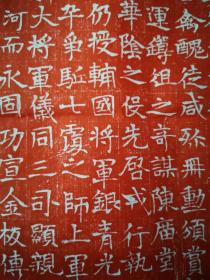 禽醜徒咸殄册勳頒賞
運鐏俎之奇謀陳庙堂
華陰之役先啓戎行執
仍授輔國將軍銀青光
爭駈七處之師上軍
大将軍儀同三司顯親
河而永固功宣金板傳